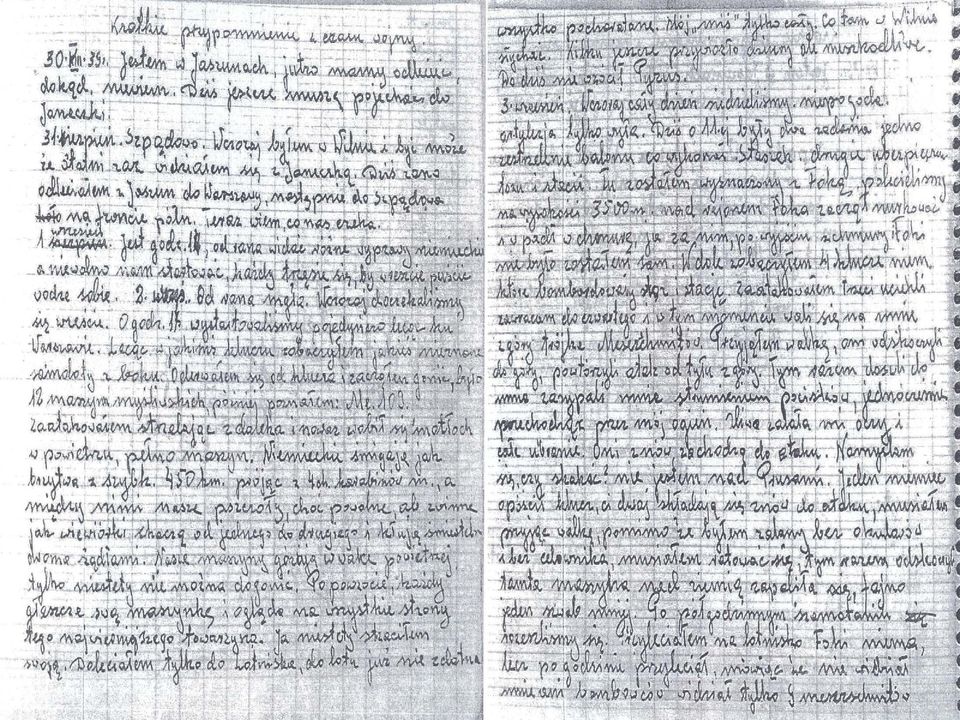 Krótkie przypomnienie z czasu wojny.
30.VIII.39r. Jestem w Jaszunach, jutro mamy odlecieć
dokąd, niewiem. Dziś jeszcze muszę pojechać do
Janeczki.
31. sierpień. Szpądowo. Wczoraj byłem w Wilnie i być może
że ostatni raz widziałem się z Janeczką. Dziś rano
odleciałem z Jaszun do Warszawy następnie do Szpądowa
na froncie półn. Teraz wiem co nas czeka.
1 wrzesień. Jest godz. od rana widać różne wyprawy niemieckie
a niewolno nam startować, każdy trzęsie się, by wreszcie puścić
wodze sobie. 2. wrzes. Od rana mgła. Wczoraj doczekaliśmy
się wreście. O godz. wystartowaliśmy pojedyńczo lecąc ku
Warszawie. Lecąc w jakimś kluczu zobaczyłem jakieś nieznane
samoloty z boku. Oderwałem się od klucza i zacząłem gonić, było
12 maszyn myśliwskich, poźniej poznałem: Me. 109.
Zaatakowałem strzelając z daleka i naraz zrobił się młotłoch
w powietrzu, pełno maszyn. Niemieckie śmigają jak
brzytwa z szybk. 450 km. prując z 4ch karabinów m., a
między nimi nasze pszczoły, choć powolne, ale zwinne
jak wiewiórki skaczą od jednego do drugiego i kłują śmierteln.
dwoma żądłami. Nasze maszyny górują w walce powietrznej
tylko niestety nie można dogonić. Po powrocie, każdy
głaszcze swą maszynkę i ogląda na wszystkie strony
tego najwierniejszego towarzysza. Ja niestety straciłem
swoją. Doleciałem tylko do lotniska, do lotu już nie zdatna
wszystko pocharatane. Mój "miś" tylko cały. Co tam w Wilnie
słychać. Kilku jeszcze przywiozło dziury ale nieszkodliwe.
Do dziś nie wrócił Pyzus.
3. wrzesień. Wczoraj cały dzień siedzieliśmy. niepogoda.
artyleria tylko wyła. Dziś o 11-ej były dwa zadania jedno
zestrzelenie balonu co wykonał Stasiek. drugie ubezpieczen.
toru i stacji. Tu zostałem wyznaczony z Foką, polecieliśmy
na wysokości 3500 m. nad rejonem Foka zaczął nurkować
i wpadł w chmurę, ja za nim, po wyjściu z chmury Foki
nie było zostałem sam. W dole zobaczyłem 4 klucze niem.
które bombardowały tor i stację. Zaatakowałem trzeci uciekli
zawracam do czwartego i w tym momencie wali się na mnie
z góry trójka Meserschmitów. Przyjąłem walkę, oni odskoczyli
do góry, powtórzyli atak od tyłu z góry. Tym razem doszli do
mnie zasypali mnie strumieniem pocisków, jednocześnie
przechodząc przez mój ogień. Oliwa zalała mi oczy i
całe ubranie. Oni znów zachodzą do ataku. Namyślam
się, czy skakać? nie jestem nad Prusami. Jeden niemiec
opuścił klucz, a dwaj składają się znów do ataku, musiałem
przyjąć walkę, pommimo że byłem zalany bez okularów
i bez celownika, musiałem ratować się, tym razem odstrzeliwuj.
tamta maszyna nad ziemią zapaliła się, fajno
jeden szwab mniej. To półgodzinnym szamotaniu
rozeszliśmy się. Przyleciałem na lotnisko Foki niema,
lecz po godzinie przyleciał, mówiąc że nie widział
mnie ani bombowców widział tylko 9 meserschmitów